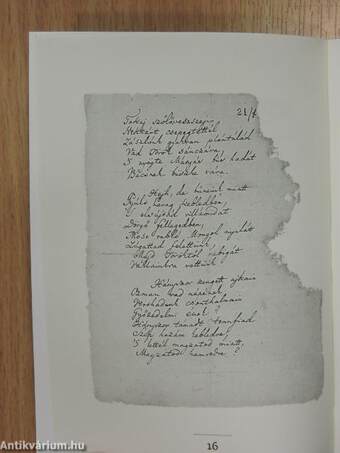 Tokaj szőlővesszein
Nektárt csepegtettél.
Zászlónk gyakran plántálád
Vad Török sánczára,
S nyögte Mátyás bús hadát
Bécsnek büszke vára.
Hajh, de bűneink miatt
Gyúlt harag kebledben,
S elsújtád villámidat
Dörgő fellegedben,
Most rabló Mongol nyilát
Zúgattad felettünk,
Majd Töröktől rabigát
Vállainkra vettünk.
Hányszor zengett ajkain
Ozman vad népének
Vert hadunk csonthalmain
Győzedelmi ének!
Hányszor támadt tenfiad
Szép hazám kebledre,
S lettél magzatod miatt
Magzatod hamvedre?
16
Antikvárium.hu
antikvarium.hu